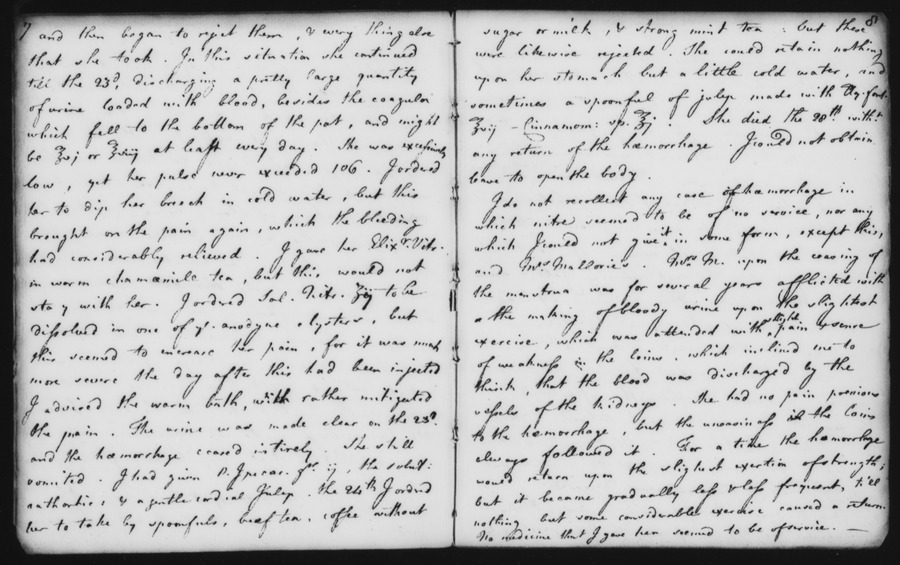 7
and then began to reject them, & every thing else
that she took. In this situation she continued
till the 23d, discharging a pretty large quantity
of urine loaded with blood, besides the coagula
which fell to the bottom of the pot, and might
be ℥vj or ℥viij at least every day. She was excessively
low, yet her pulse never exceeded 106. I ordered
her to dip her breech in cold water, but this
brought on the pain again, which the bleeding
had considerably relieved. I gave her Elixr. Vitr.
in worm chamœmile tea, but this, would not
stay with her. I ordered Sal. Nitr. ʒij to be
dissolved in one of ye. anodyne clysters, but
this seemed to increase her pain, for it was much
more severe the day after this had been injected
I advised the warm bath, which rather mitigated
the pain. The urine was made clear on the 23d.
and the hœmorrhage ceased intirely. She still
vomited. I had given P. Ipecac. gr. ij, the
& a gentle cordial Julep. The 24th I ordered
her to take by spoonfuls, beef tea, coffee without
8
sugar or milk, & strong mint tea: but these
were likewise rejected. She could retain nothing
upon her stomach but a little cold water, and
sometimes a spoonful of julep made with Aq. font.
℥vij - Cinnamom: sp. ℥j. She died the 28th witht.
any return of the hœmorrhage. I could not obtain
leave to open the body.
I do not recollect any case of hœmorrhage in
which nitre seemed to be of no service, nor any
which I could not give it in some form, except this,
and Mrs. Mallorie's Mrs. M. upon the ceasing of
the menstrua was for several years afflicted with
the making of bloody urine upon the slightest
exercise, which was attended with slight pain & sense
of weakness in the loins, which inclined me to
think, that the blood was discharged by the
vessels of the kidneys. She had no pain previous
to the hœmorrhage, but the uneasiness in the loins
always followed it. For a time the hœmorrhage
would return upon the slighest exertion of strength;
but it became gradually less & less frequent, till
nothing but some considerable exercise caused a return.
No medicine that I gave her seemed to be of service. —